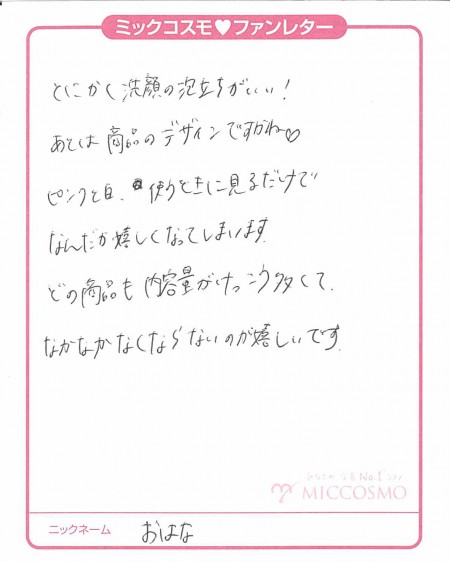 ミックコスモ♥ファンレター
とにかく洗顔の泡立ちがいい!
あとは商品のデザインですかね♡
ピンクと白、使うときに見るだけで
なんだか嬉しくなってしまいます。
どの商品も内容量がけっこう多くて、
なかなかなくならないのが嬉しいです。
No.1
MICCOSMO
ニックネーム おはな